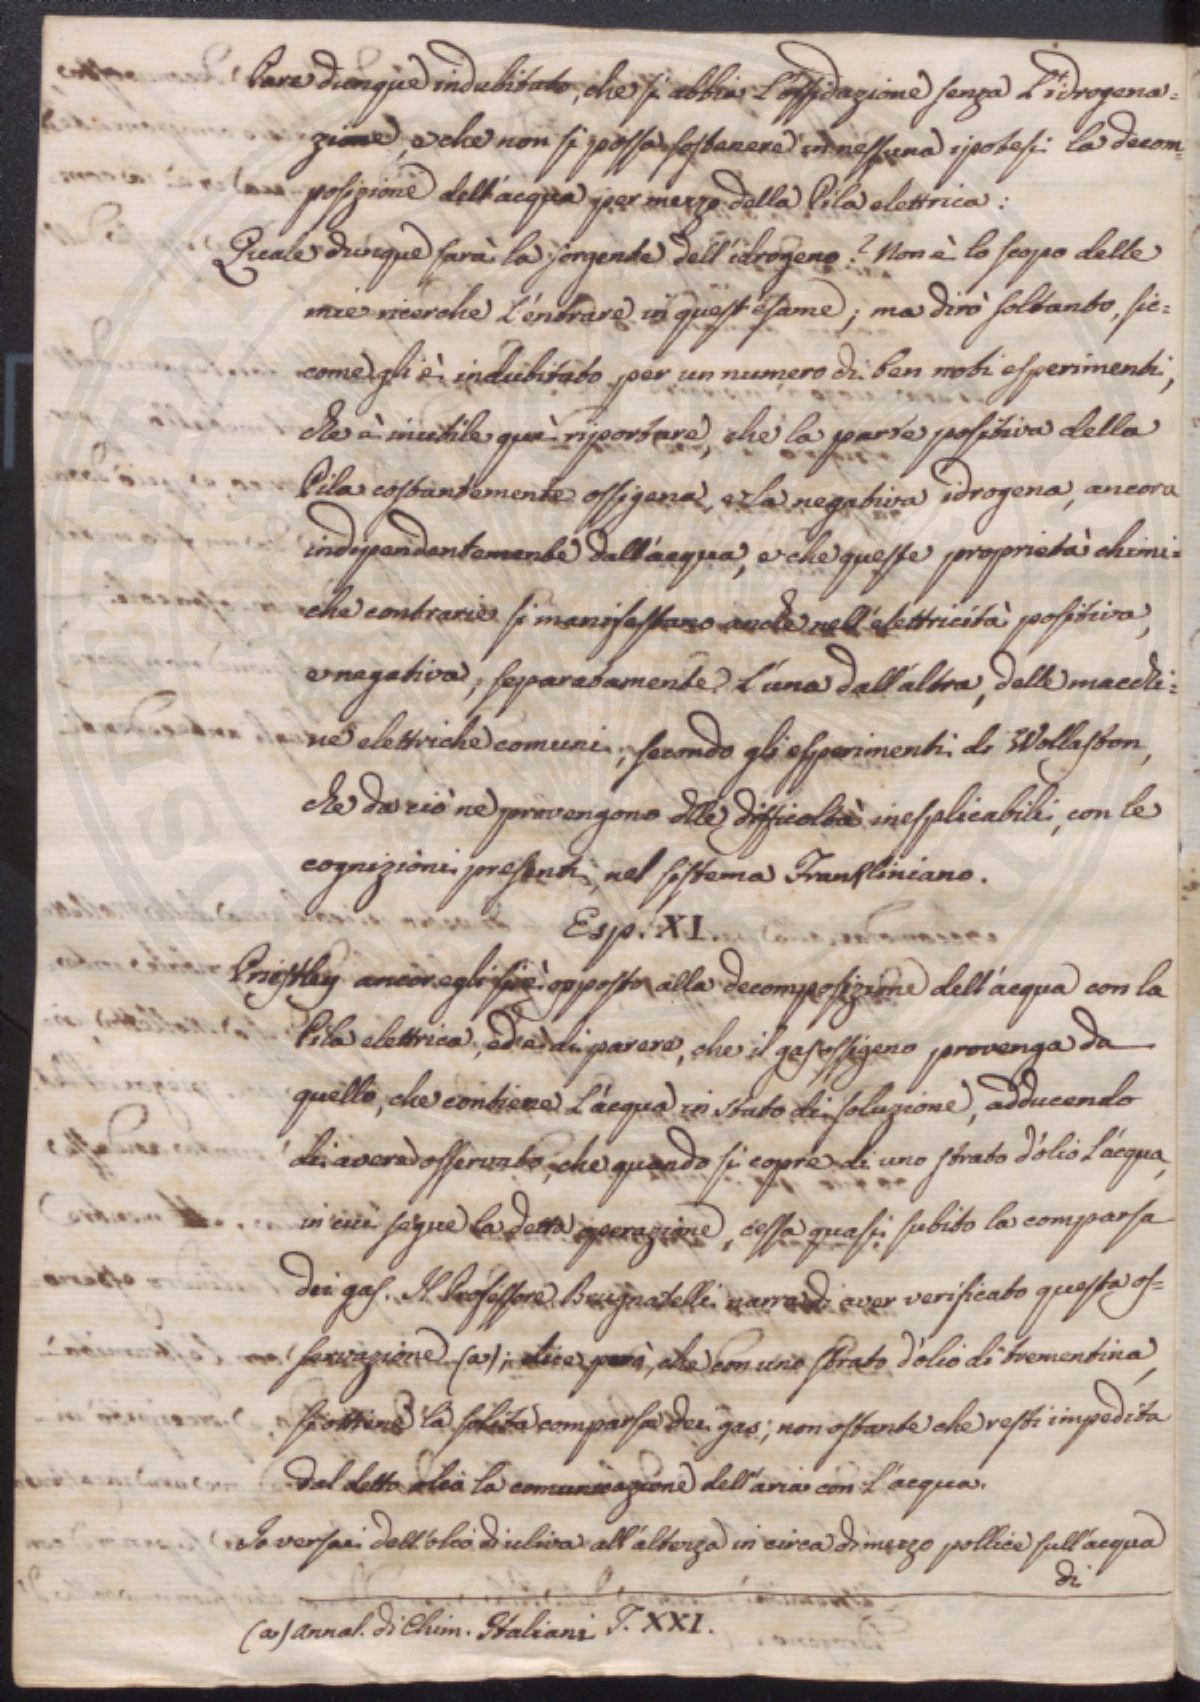 Pare dunque indubitato, che si abbia l'ossidazione senza l'idrogena=
zione, e che non si possa sostenere in nessuna ipotesi la decom=
posizione dell'acqua per mezzo della Pila elettrica:
Quale dunque sarà la sorgente dell'idrogeno? Non è lo scopo delle
mie ricerche l'entrare in quest'esame; ma dirò soltanto, sic=
come gli è indubitato per un numero di ben noti esperimenti,
che è inutile quì riportare, che la parte positiva della
Pila costantemente ossigena, e la negativa idrogena, ancora
indipendentemente dall'acqua, e che queste proprietà chimi=
che contrarie si manifestano anche nell'elettricità positiva,
e negativa, separatamente l'una dall'altra, delle macchi=
ne elettriche comuni, secondo gli esperimenti di Wollaston,
che da ciò ne provengono delle difficoltà inesplicabili, con le
cognizioni presenti, nel sistema Frankliniano.
Esp. XI.
Pristley ancor egli si è opposto alla decomposizione dell'acqua con la
Pila elettrica, ed è di parere, che il gas ossigeno provenga da
quello, che contiene l'acqua in stato di soluzione, adducendo
di avere osservato, che quando si copre di uno strato d'olio l'acqua,
in cui segue la detta operazione, cessa quasi subito la comparsa
dei gas. Il Professore Brugnatelli narra di aver verificato questa os=
servazione (a); dice però, che con uno strato d'olio di trementina,
si ottiene la solita comparsa dei gas; non ostante che resti impedita
dal detto olio la comunicazione dell'aria con l'acqua.
Io versai dell'olio di uliva all'altezza in circa di mezzo pollice sull'acqua
di
(a) Annal. di Chim. Italiani T. XXI.